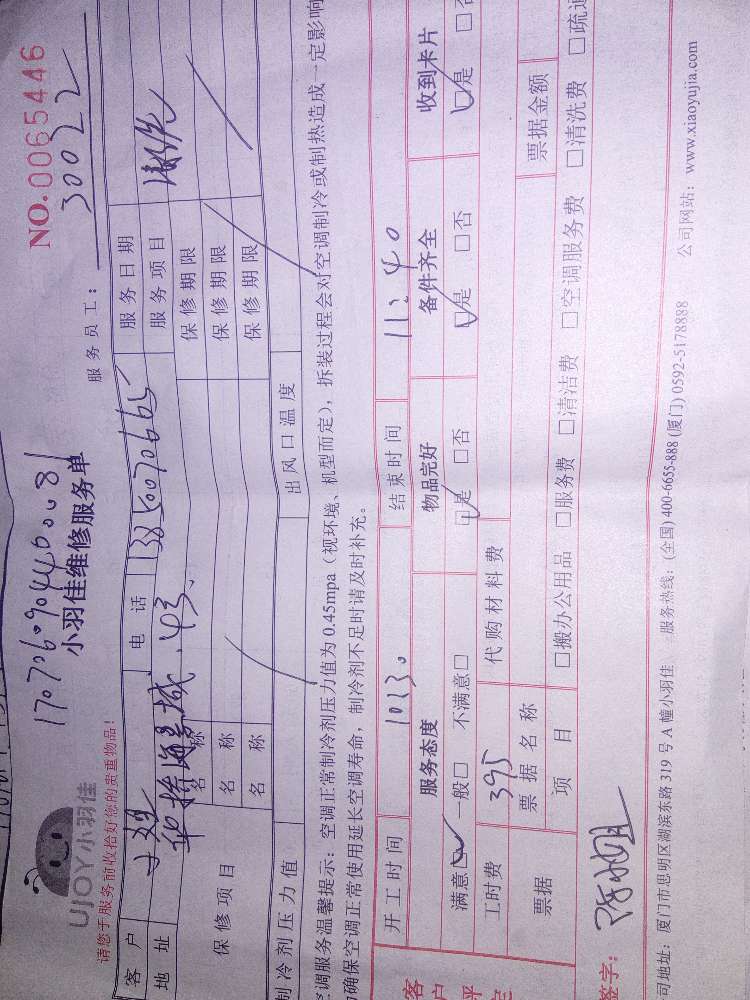 17070690440081
NO.0065446
UJOY小羽佳
小羽佳维修服务单
请您于服务前收拾好您的贵重物品!
服务员工: 30022
客户 电话 13850070665 服务日期
地址 43 服务项目
保修项目 名称 保修期限
名称 保修期限
名称 保修期限
制冷剂压力值 出风口温度
空调服务温馨提示: 空调正常制冷剂压力值为 0.45mpa (视环境、机型而定), 拆装过程会对空调制冷或制热造成一定影响
确保空调正常使用延长空调寿命, 制冷剂不足时请及时补充。
开工时间 10:30 结束时间 11:40
客户评定 服务态度 物品完好 备件齐全 收到卡片
满意☑ 一般□ 不满意□ ☑是 □否 ☑是 □否 ☑是 □否
工时费 395 代购材料费
票据 票据名称 票据金额
项目 □搬办公用品 □服务费 □清洁费 □空调服务费 □清洗费 □疏通
签字:
司地址: 厦门市思明区湖滨东路 319 号 A 幢小羽佳 服务热线: (全国) 400-6655-888 (厦门) 0592-5178888 公司网站: www.xiaoyujia.com